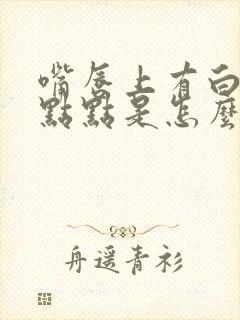 嘴唇上有白
點點是怎麼
舟遥青衫